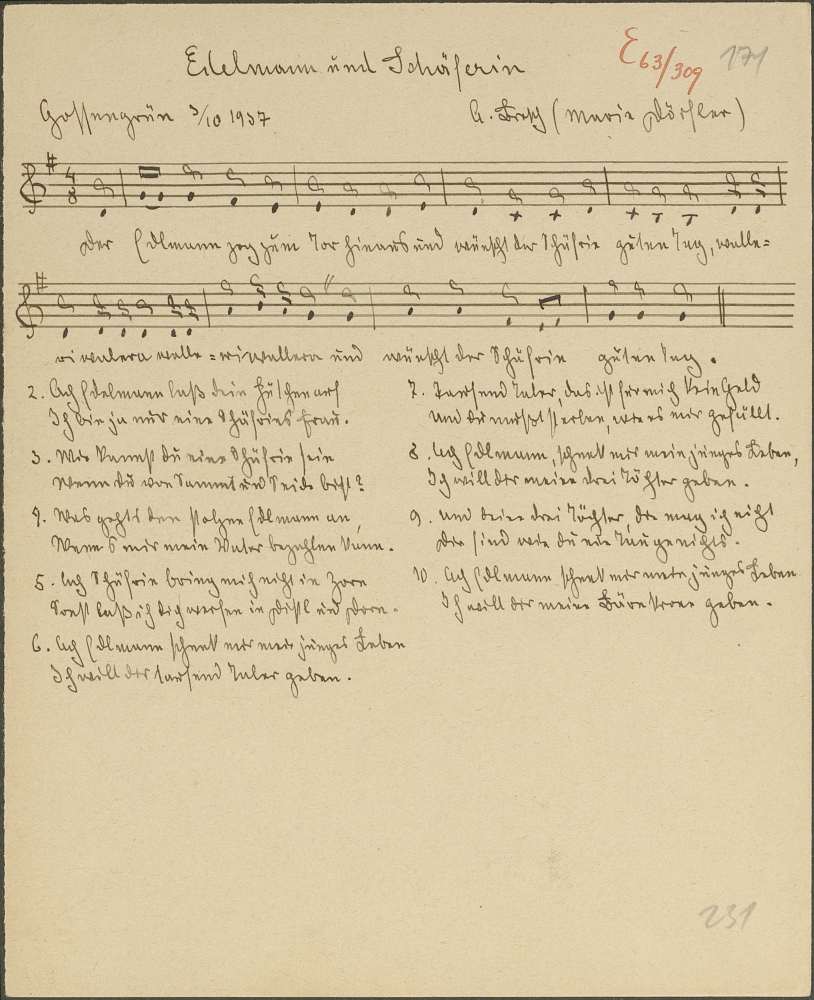 Edelmann und Schäferin
E63/309 171
Gossengrün 3/10 1937 A. Brosch (Marie Dörfler)
4/8
Der Edlmann zog zum Tor hinaus und wünscht der Schäfrin guten Tag, walle=
ri walera walle=ri wallera und wünscht der Schäfrin guten Tag.
2. Ach Edelmann laß dein Hütchen auf
Ich bin ja nur eine Schäfrins Frau.
3. Wie kannst du eine Schäfrin sein
Wenn du von Sammet und Seide bist?
4. Was gehts den stolzen Edlmann an,
Wenn S mir mein Vater bezahlen kann.
5. Ach Schäfrin bring mich nicht in Zorn
Sonst laß ich dich werfen in Distl und Dorn.
6. Ach Edlmann schenk mir mein junges Leben
Ich will dir tausend Taler geben.
7. Tausend Taler, das ist für mich kein Geld
Und du mußt sterben, wie es mir gefällt.
8. Ach Edlmann, schenk mir mein junges Leben,
Ich will dir meine drei Töchter geben.
9. Und deine drei Töchter, die mag ich nicht
Die sind wie du ein Taugenichts.
10. Ach Edlmann schenk mir mein junges Leben
Ich will dir meine geben.
231